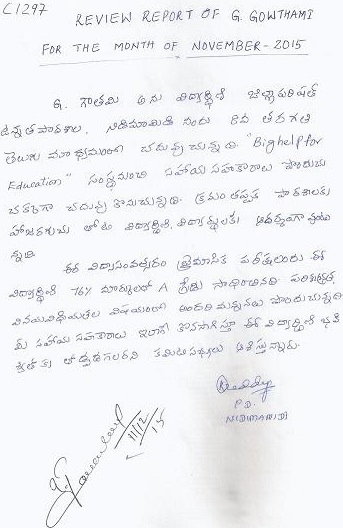 C1297
REVIEW REPORT OF G. GOWTHAMI
FOR THE MONTH OF NOVEMBER-2015
G. గౌతమి అను విద్యార్థిని జిల్లాపరిషత్
ఉన్నత పాఠశాల, నిడిమామిడి నందు 8వ తరగతి
తెలుగు మాధ్యమంలో చదువుచున్నది. "Bighelp for
Education" సంస్థనుంచి సహాయ సహకారాలు పొందుచు
చక్కగా చదువు కొనుచున్నది. క్రమం తప్పక పాఠశాలకు
హాజరగుచు తోటి విద్యార్థిని, విద్యార్థులకు ఆదర్శంగా వుంటు
న్నది.
ఈ విద్యాసంవత్సరం త్రైమాసిక పరీక్షలందు ఈ
విద్యార్థిని 76% మార్కులతో A గ్రేడు సాధించినది. పరిశుభ్రత,
వినయవిధేయతల విషయంలో అందరి మన్ననలు పొందుచున్నది.
మీ సహాయ సహకారాలు ఇలాగే కొనసాగిస్తూ ఈ విద్యార్థిని భవి
ష్యత్ కు తోడ్పడగలరని కమిటీ సభ్యులు ఆశిస్తున్నారు.
P.D.
NIDIMAMIDI
11/12/15